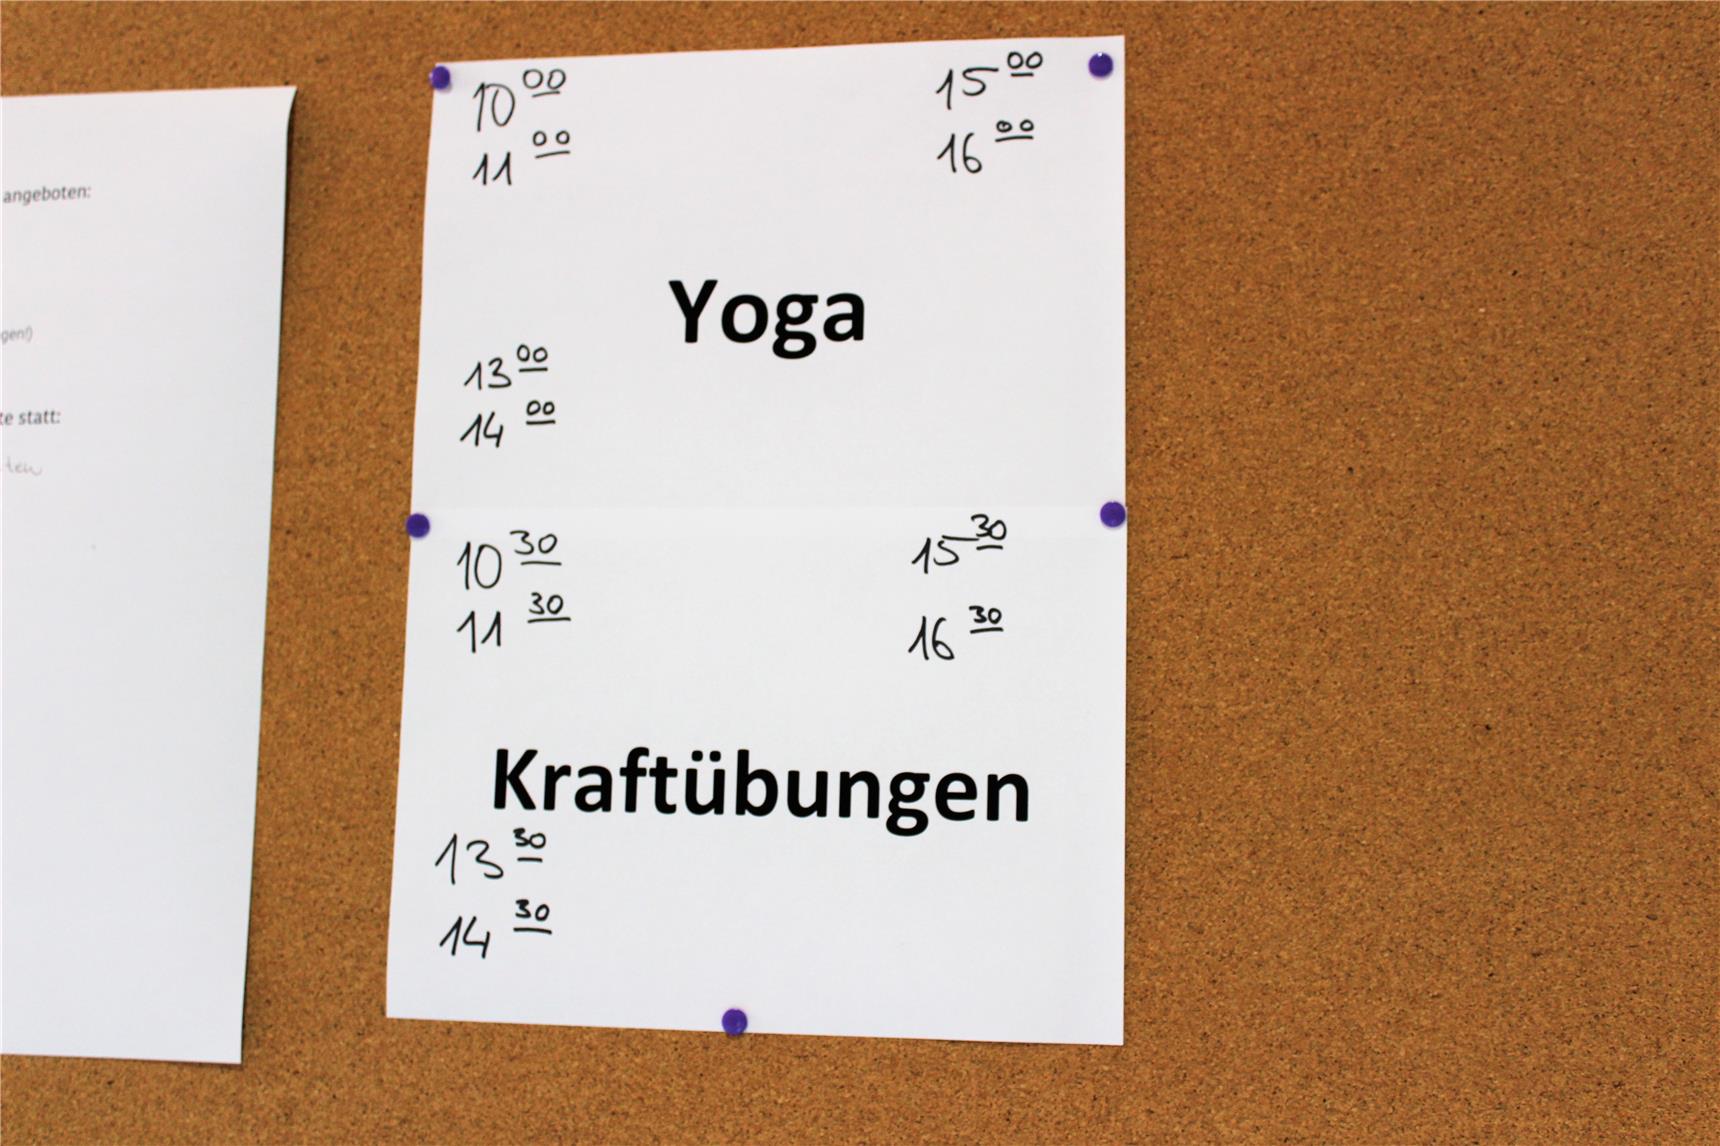 angeboten:
gen!)
te statt:
ten
10 00
11 00
15 00
16 00
Yoga
13 00
14 00
10 30
11 30
15 30
16 30
Kraftübungen
13 30
14 30